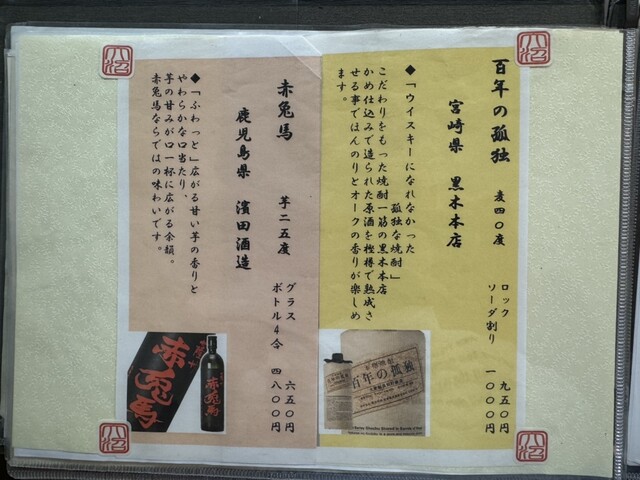 百年の孤独　麦四〇度
宮崎県　黒木本店
ロック　九五〇円
ソーダ割り　一〇〇〇円
◆「ウイスキーになれなかった
孤独な焼酎」
こだわりをもった焼酎一筋の黒木本店
かめ仕込みで造られた原酒を樫樽で熟成さ
せる事でほんのりとオークの香りが楽しめ
ます。
百年の孤独
赤兎馬　芋二五度
鹿児島県　濱田酒造
グラス　六五〇円
ボトル4合　四八〇〇円
◆「ふわっと」広がる甘い芋の香りと
やわらかな口当たり、
芋の甘みが口一杯に広がる余韻。
赤兎馬ならではの味わいです。
赤兎馬
赤兎馬